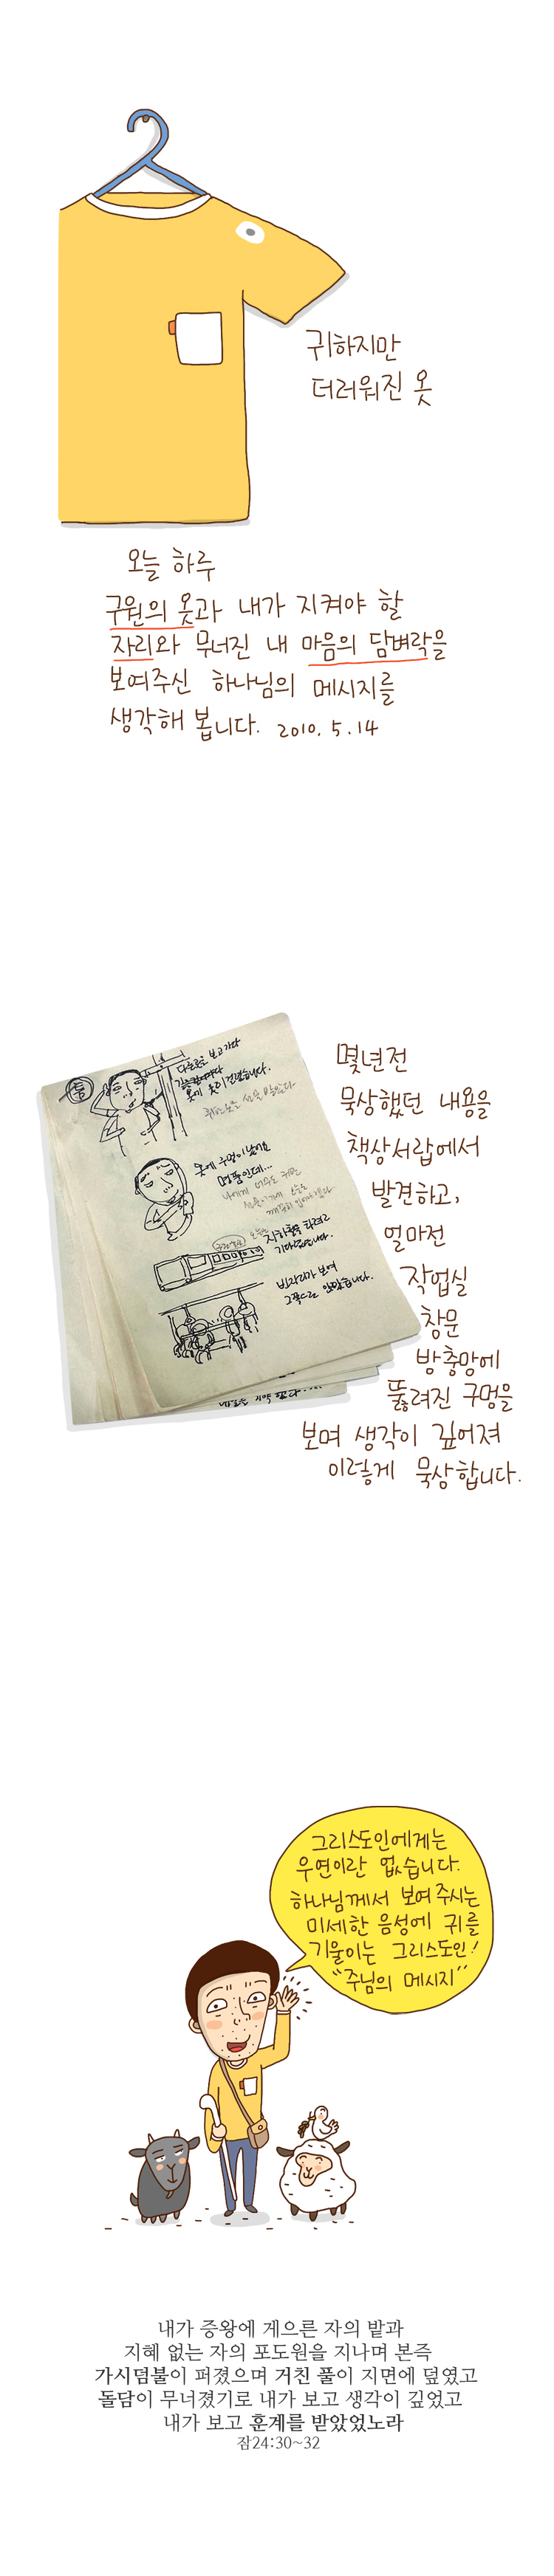 귀하지만
더러워진 옷
오늘 하루
구원의 옷과 내가 지켜야 할
자리와 무너진 내 마음의 담벼락을
보여주신 하나님의 메시지를
생각해 봅니다. 2010. 5. 14
몇년전
묵상했던 내용을
책상서랍에서
발견하고,
얼마전
작업실
창문
방충망에
뚫려진 구멍을
보며 생각이 깊어져
이렇게 묵상합니다.
보고 가다
옷이 걸렸습니다.
옷에 구멍이 났네요
명품인데...
지하철을 타려고
기다렸습니다.
빈자리가 보여
그쪽으로 앉았습니다.
그리스도인에게는
우연이란 없습니다.
하나님께서 보여 주시는
미세한 음성에 귀를
기울이는 그리스도인!
"주님의 메시지"
내가 증왕에 게으른 자의 밭과
지혜 없는 자의 포도원을 지나며 본즉
가시덤불이 퍼졌으며 거친 풀이 지면에 덮였고
돌담이 무너졌기로 내가 보고 생각이 깊었고
내가 보고 훈계를 받았었노라
잠24:30~32